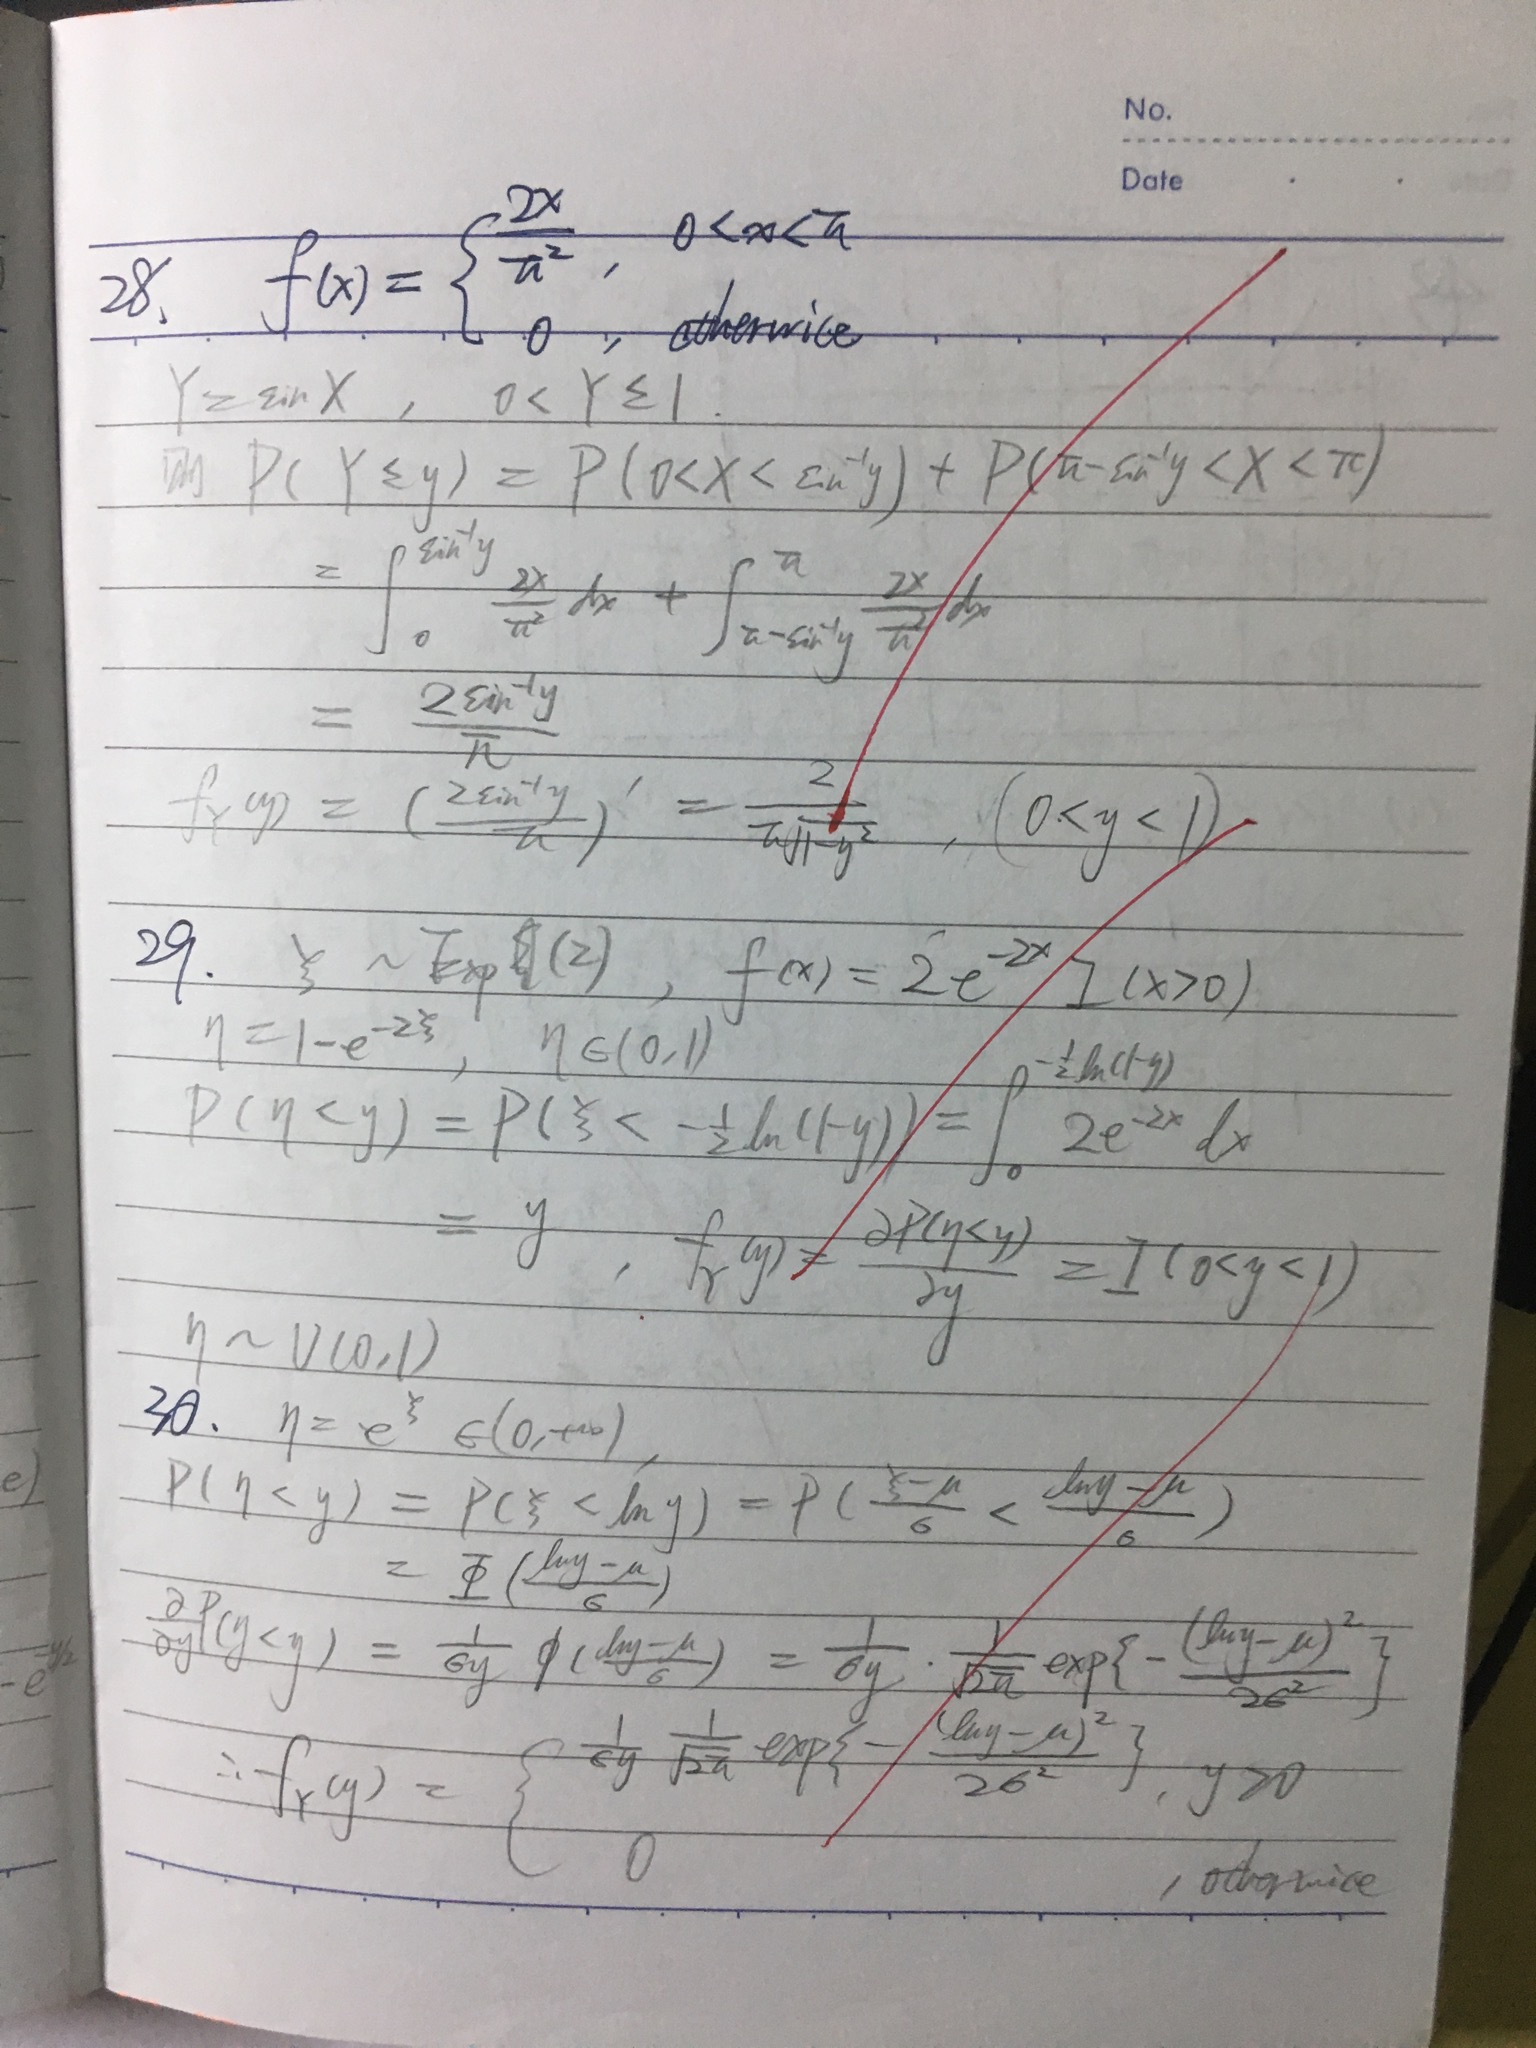 No.
Date
28. f(x) = { 2x/π², 0<x<π
0, otherwise
Y = sin X, 0 < Y ≤ 1.
则 P(Y≤y) = P(0<X<sin⁻¹y) + P(π-sin⁻¹y<X<π)
= ∫₀^{sin⁻¹y} 2x/π² dx + ∫_{π-sin⁻¹y}^{π} 2x/π² dx
= 2sin⁻¹y/π
f_Y(y) = (2sin⁻¹y/π)' = 2/(π√(1-y²)), (0<y<1)
29. ξ ~ Exp(2), f(x) = 2e^{-2x} I(x>0)
η = 1-e^{-2ξ}, η∈(0,1)
P(η<y) = P(ξ < -½ln(1-y)) = ∫₀^{-½ln(1-y)} 2e^{-2x} dx
= y, f_Y(y) = ∂P(η<y)/∂y = I(0<y<1)
η ~ U(0,1)
30. η = e^ξ ∈(0,+∞),
P(η<y) = P(ξ<ln y) = P((ξ-μ)/σ < (lny-μ)/σ)
= Φ((lny-μ)/σ)
∂/∂y P(y<y) = 1/(σy) φ((lny-μ)/σ) = 1/(σy) · 1/√(2π) exp{-(lny-μ)²/(2σ²)}
∴ f_Y(y) = { 1/(σy) 1/√(2π) exp{-(lny-μ)²/(2σ²)}, y>0
0, otherwise
e)
-e^{-y/2}